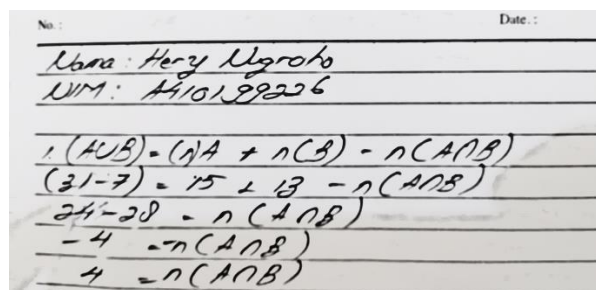 No.: Date.:
Nama : Hery Nugroho
NIM : A410199226
1. (A∪B) = (n)A + n(B) - n(A∩B)
(31-7) = 15 + 13 - n(A∩B)
24-28 = n(A∩B)
-4 = -n(A∩B)
4 = n(A∩B)